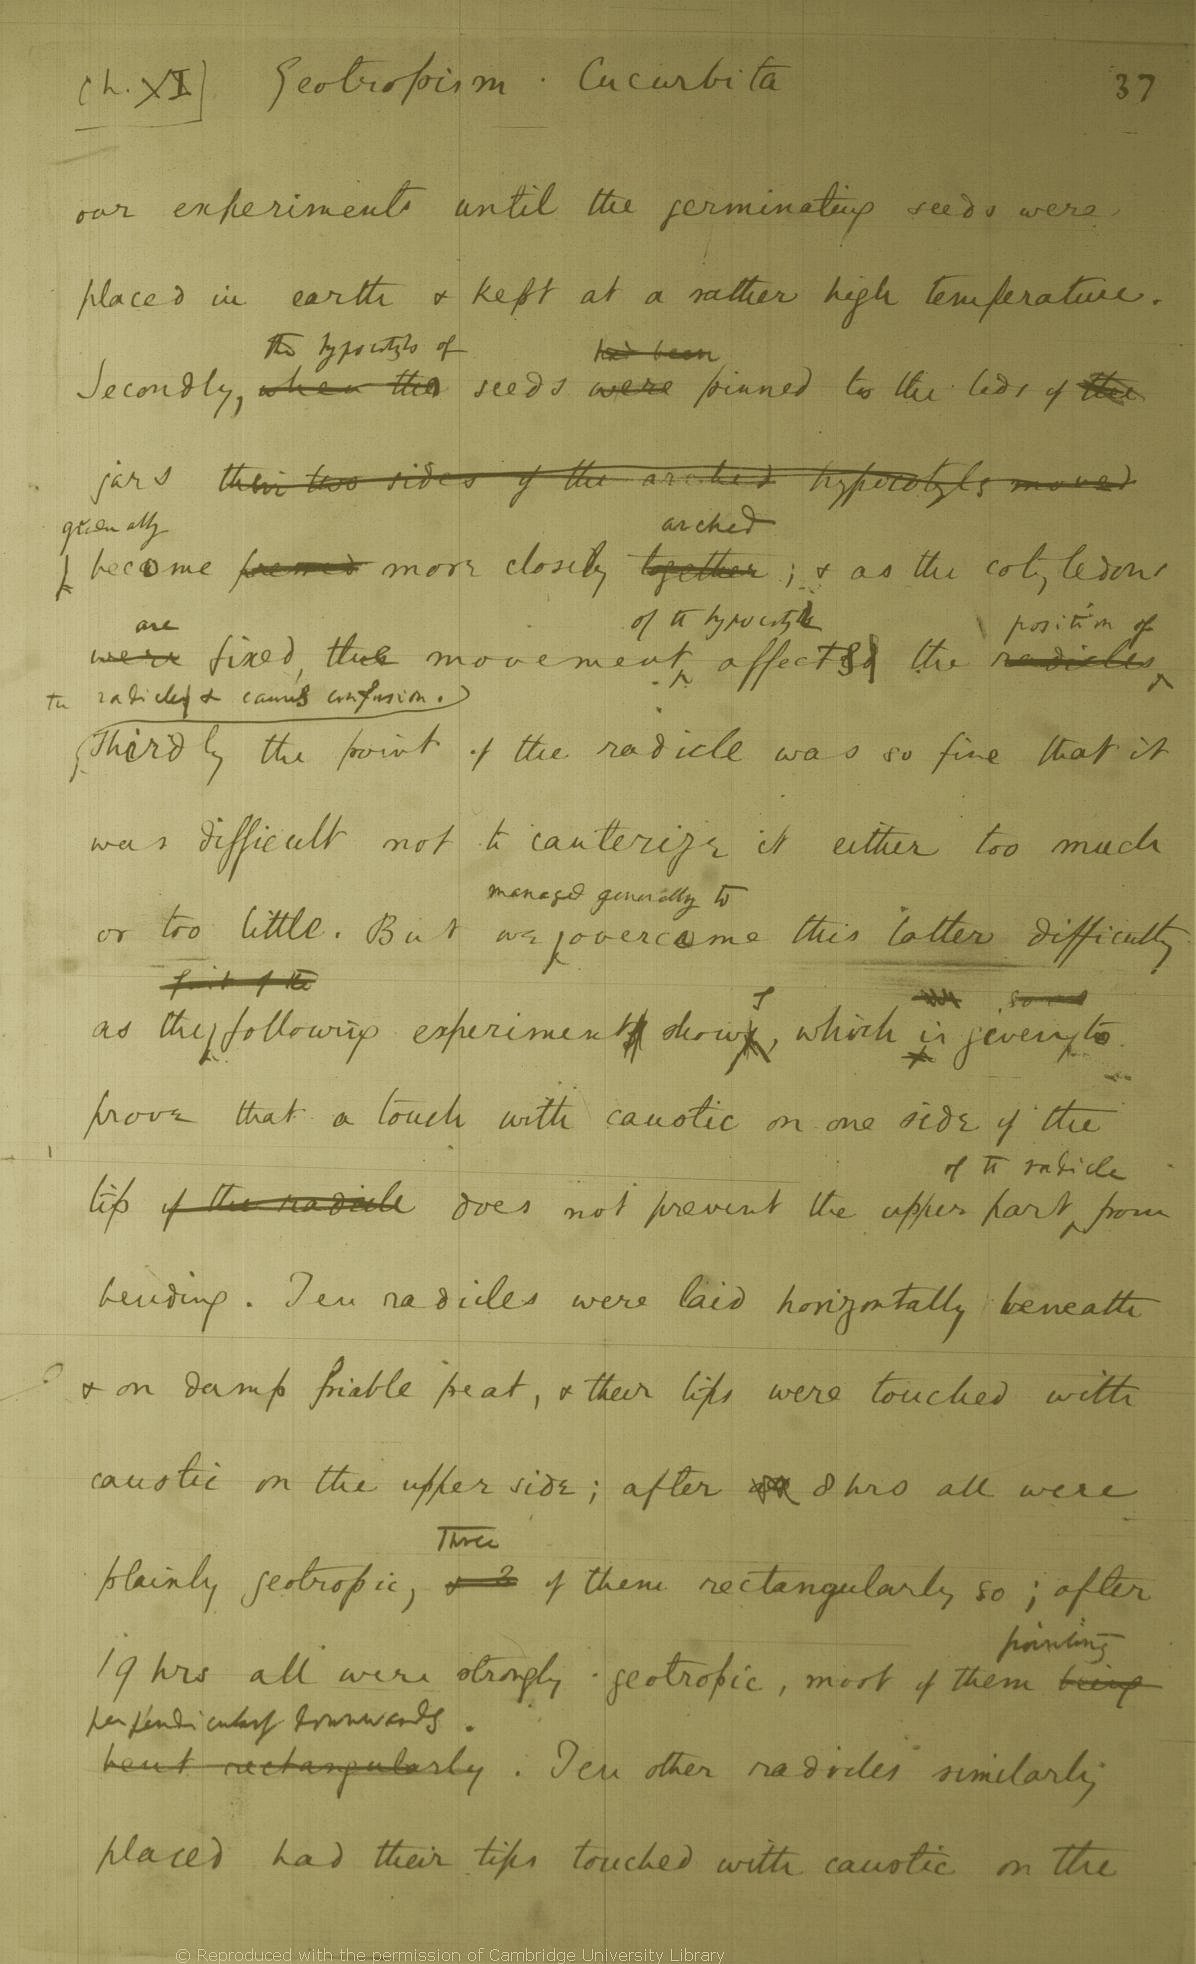 Ch. XI] Geotropism . Cucurbita 37
our experiments until the germinating seeds were
placed in earth & kept at a rather high temperature.
the hypocotyls of had been
Secondly, when the seeds were pinned to the lids of the
jars their two sides of the arched hypocotyls moved
generally arched
become pressed more closely together ; & as the cotyledons
are of the hypocotyls position of
were fixed, the movement affects the radicles
the radicles & causes confusion.
Thirdly the point of the radicle was so fine that it
was difficult not to cauterize it either too much
managed generally to
or too little. But we overcome this latter difficulty
first of the
as the following experiments shows, which is given to
prove that a touch with caustic on one side of the
of the radicle
tip of the radicle does not prevent the upper part from
bending. Ten radicles were laid horizontally beneath
& on damp friable peat, & their tips were touched with
caustic on the upper side; after 8 hrs all were
Three
plainly geotropic, & 3 of them rectangularly so ; after
pointing
19 hrs all were strongly geotropic, most of them being
perpendicularly downwards.
bent rectangularly . Ten other radicles similarly
placed had their tips touched with caustic on the
© Reproduced with the permission of Cambridge University Library